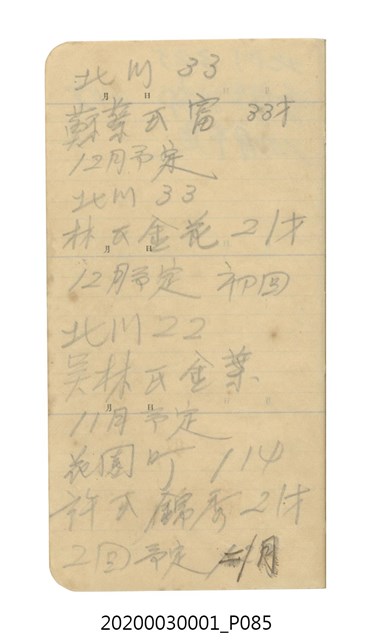 北川 33
月 日
蘇葉氏富 33才
12月予定
北川 33
林氏金花 21才
月 日
12月予定 初回
北川 22
吴林氏金葉
月 日
11月予定
花園町 114
許氏錦秀 21才
2回予定 1月
20200030001_P085